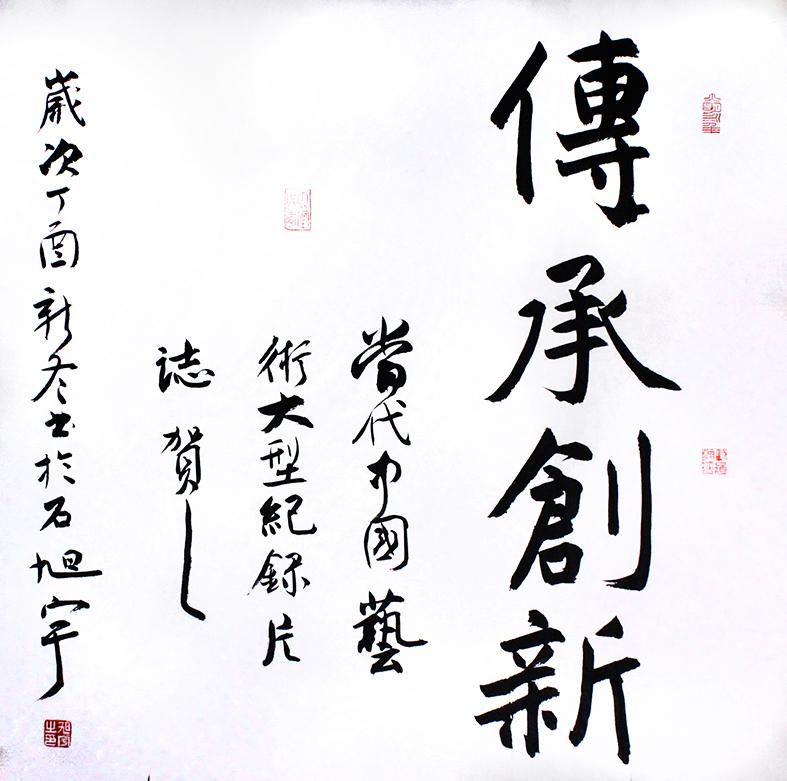 傳承創新
當代中國藝
術大型紀録片
誌賀
歲次丁酉新冬書於石旭宇